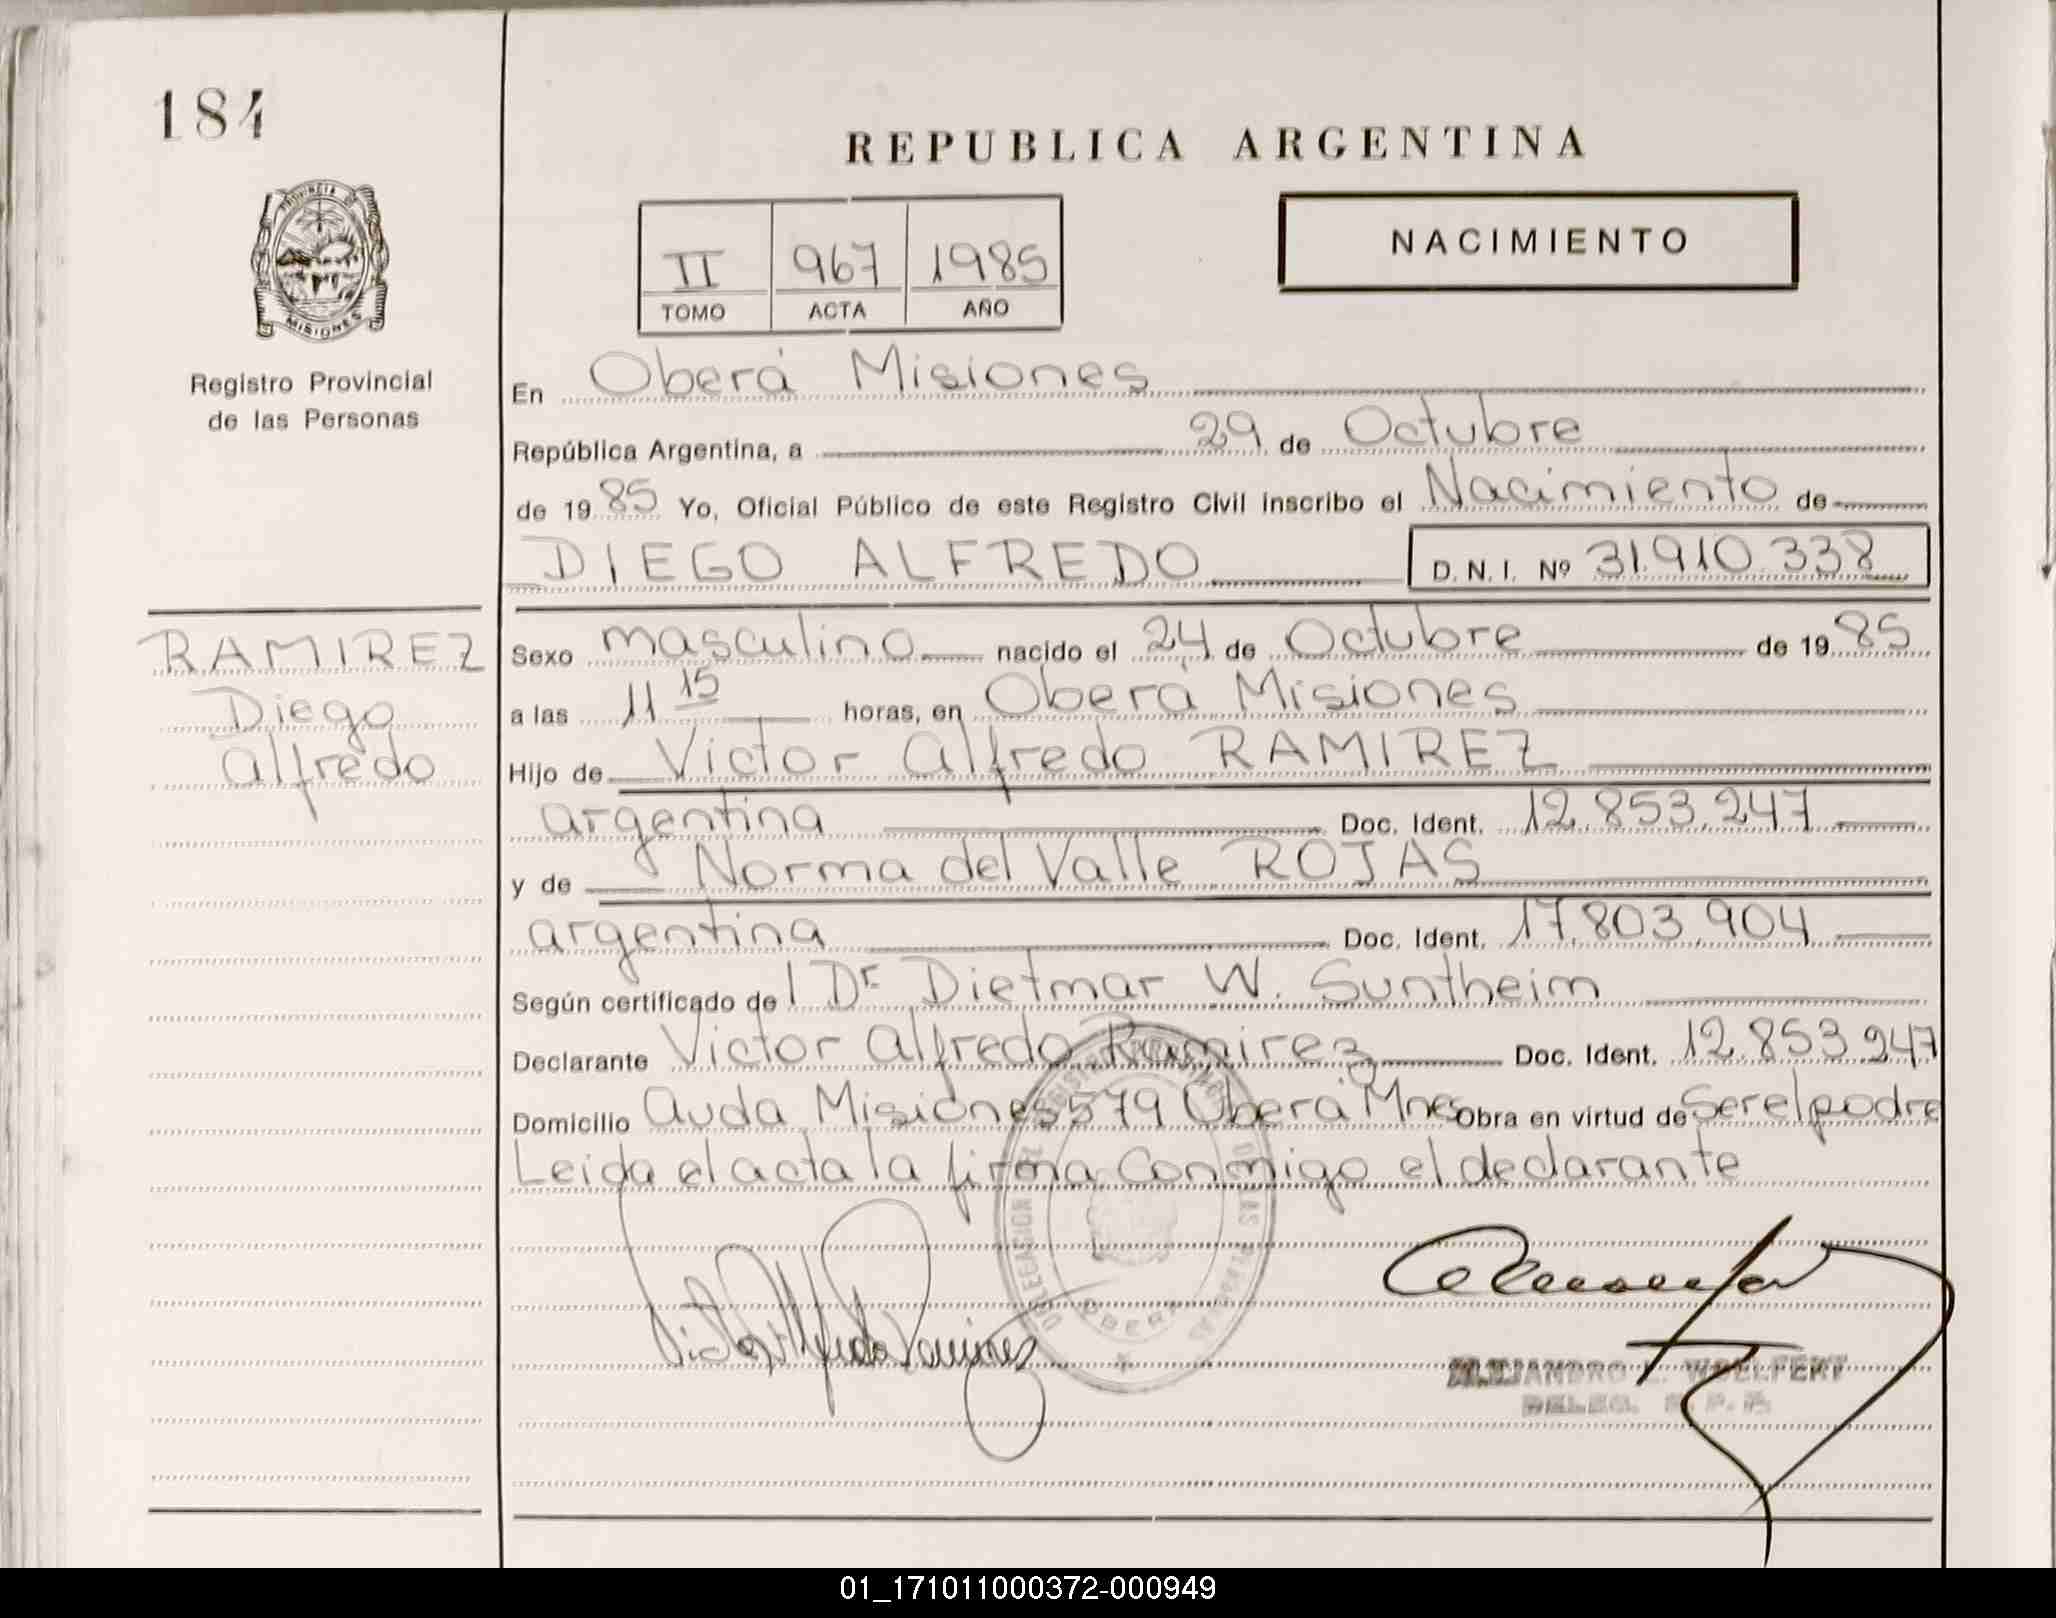 184
REPUBLICA ARGENTINA
PROVINCIA DE
MISIONES
Registro Provincial
de las Personas
II 967 1985
TOMO ACTA AÑO
NACIMIENTO
En Oberá Misiones
República Argentina, a 29 de Octubre
de 1985 Yo, Oficial Público de este Registro Civil inscribo el Nacimiento de
DIEGO ALFREDO D. N. I. Nº 31.910.338
RAMIREZ
Diego
Alfredo
Sexo masculino nacido el 24 de Octubre de 1985
a las 11 15 horas, en Oberá Misiones
Hijo de Victor Alfredo RAMIREZ
argentina Doc. Ident. 12.853.247
y de Norma del Valle ROJAS
argentina Doc. Ident. 17.803.904
Según certificado de Dr. Dietmar W. Suntheim
Declarante Victor Alfredo Ramirez Doc. Ident. 12.853.247
Domicilio Avda Misiones 579 Oberá Mnes Obra en virtud de Ser el padre
Leida el acta la firma Conmigo el declarante
Victor Alfredo Ramirez
OBERA
ALEJANDRO WOELFERT
DELEG. R. P. P.
01_171011000372-000949